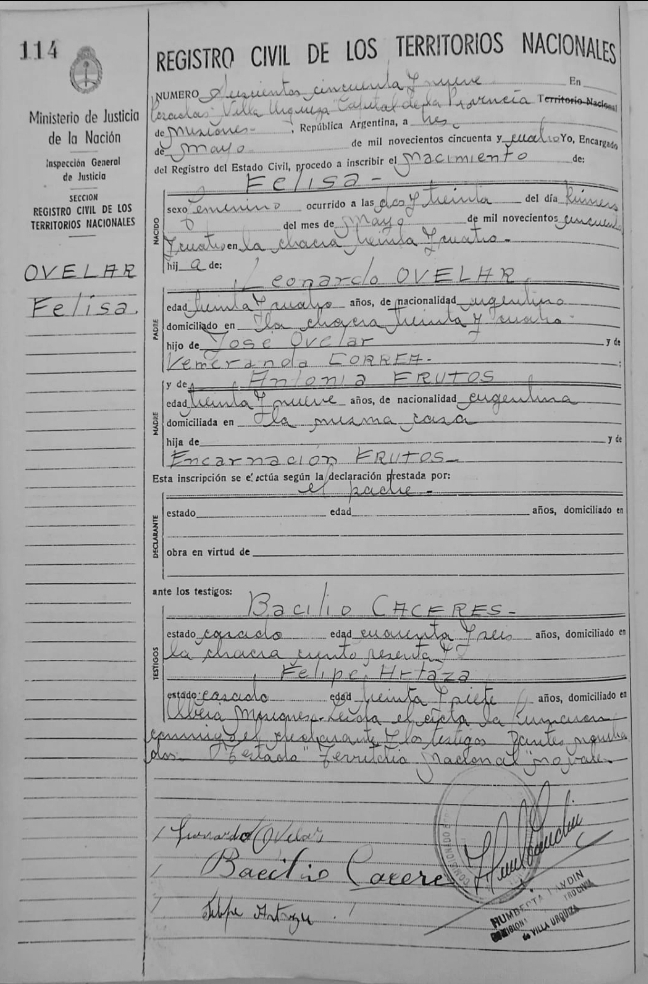 114
REGISTRO CIVIL DE LOS TERRITORIOS NACIONALES
Ministerio de Justicia
de la Nación
Inspección General
de Justicia
SECCION
REGISTRO CIVIL DE LOS
TERRITORIOS NACIONALES
OVELAR
Felisa.
NUMERO cincuenta y nueve En
Posadas Villa Urquiza Capital de la Provincia Territorio Nacional
de Misiones-, República Argentina, a tres
de mayo de mil novecientos cincuenta y cuatro Yo, Encargado
del Registro del Estado Civil, procedo a inscribir el nacimiento de:
Felisa-
NACIDO
sexo femenino ocurrido a las dos y treinta del día primero
del mes de Mayo de mil novecientos cincuenta
y cuatro en la chacra treinta y cuatro.
hija de:
Leonardo OVELAR
PADRE
edad treinta y cuatro años, de nacionalidad argentino
domiciliado en la chacra treinta y cuatro-
hijo de Jose Ovelar y de
Vemeranda CORREA.
y de Antonia FRUTOS
MADRE
edad treinta y nueve años, de nacionalidad argentina
domiciliada en la misma casa
hija de y de
Encarnacion FRUTOS-
Esta inscripción se efectúa según la declaración prestada por:
el padre-
DECLARANTE
estado edad años, domiciliado en
obra en virtud de
ante los testigos:
Bacilio CACERES-
TESTIGOS
estado casado edad cuarenta y seis años, domiciliado en
la chacra ciento
Felipe Artaza
estado casado edad treinta y siete años, domiciliado en
Leida el acta la
conmigo el declarante y los testigos
Testado "Territorio Nacional" no vale.
Leonardo Ovelar
Bacilio Cacere
Felipe Artaza
HUMBERTO
de VILLA URQUIZA